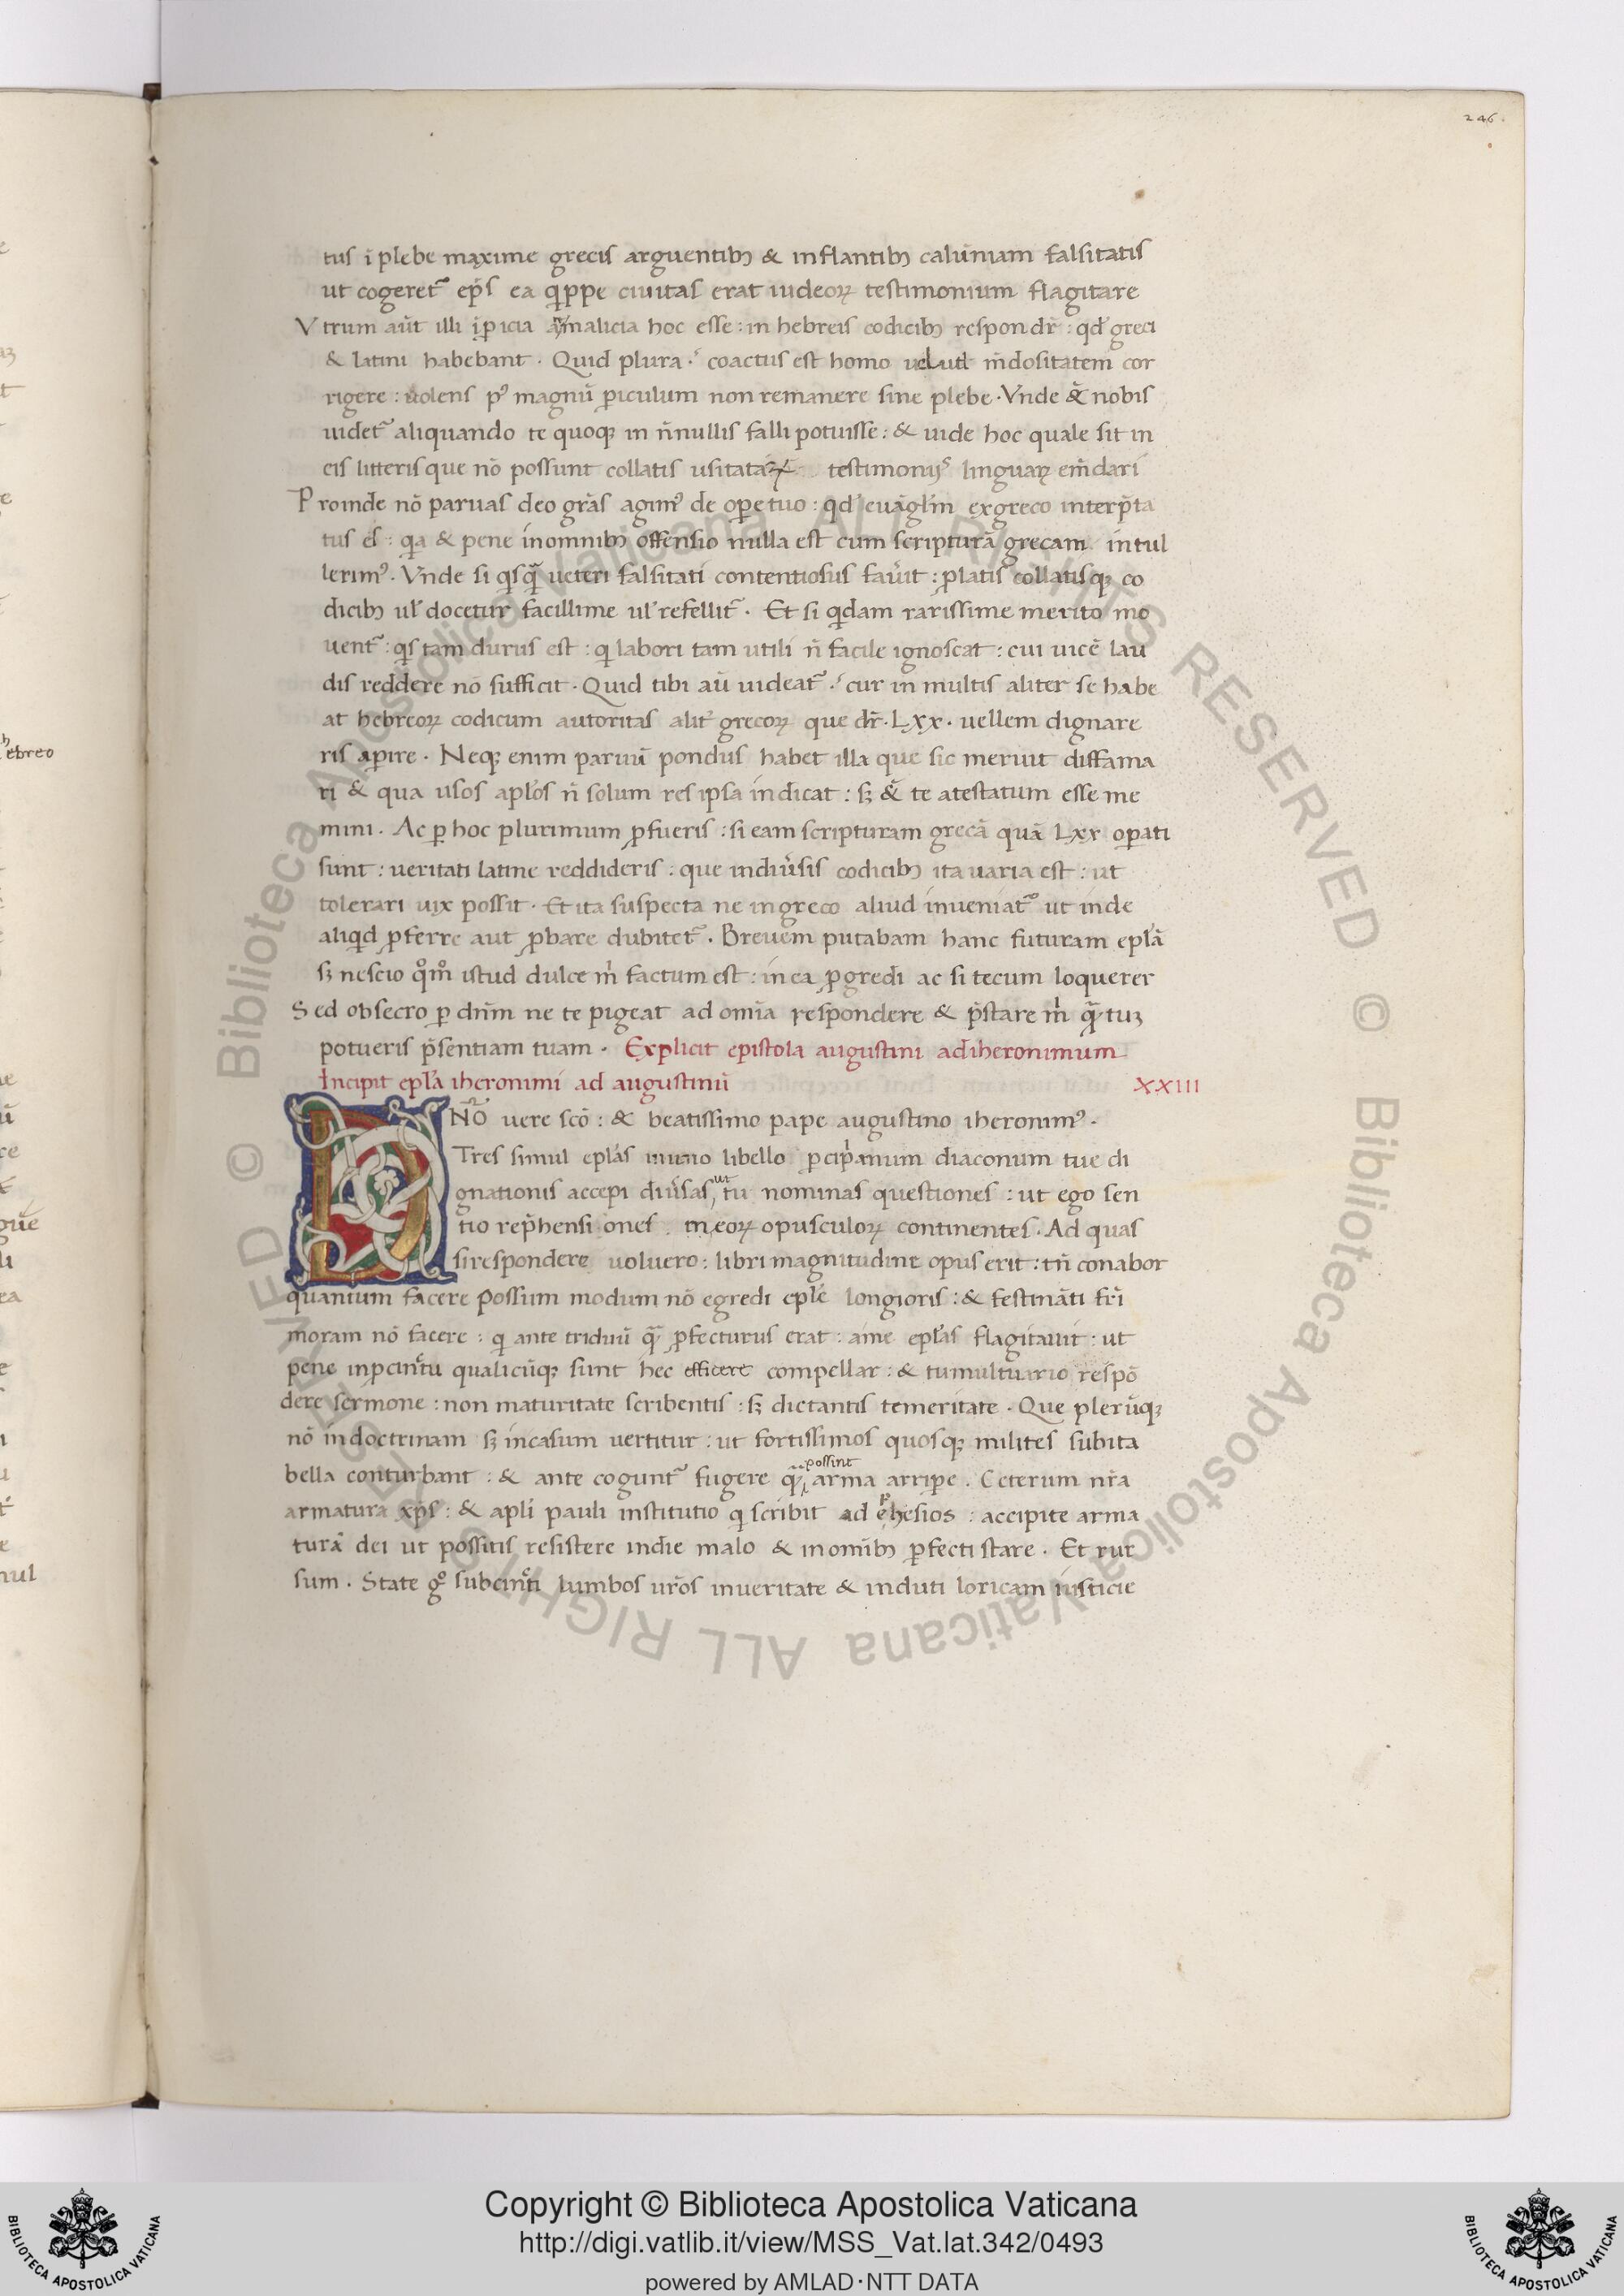 246.
tus ī plebe maxime grecis arguentibꝫ & inflantibꝫ calūniam falsitatis
ut cogeret᷑ ep̄s ea qͥppe ciuitas erat iudeoꝝ testimonium flagitare
Vtrum aūt illi īꝑicia an malicia hoc esse : in hebreis codicibꝫ respondr̄ : qd̓ greci
& latini habebant . Quid plura .ʼ coactus est homo uelut m̄dositatem cor
rigere : uolens pꝰ magnū ꝑiculum non remanere sine plebe . Vnde & nobis
uidet᷑ aliquando te quoqꝫ in n̄nullis falli potuisse : & uide hoc quale sit in
eis litteris que nō possunt collatis usitataꝝ testimonijs linguaꝝ em̄dari
Proinde nō paruas deo gr̄as agimꝰ de oꝑe tuo : qd̓ euāgl̓m ex greco interp̄ta
tus es : qͥa & pene in omnibꝫ offensio nulla est cum scripturā grecam intul
lerimꝰ . Vnde si qͥsqͣ ueteri falsitati contentiosus fau̓it : ꝓlatis collatisqꝫ co
dicibꝫ ul̓ docetur facillime ul̓ refellit᷑ . Et si qͥdam rarissime merito mo
uent᷑ : qͥs tam durus est : qͥ labori tam utili n̄ facile ignoscat : cui uicē lau
dis reddere nō sufficit . Quid tibi aū uideat᷑ .ʼ cur in multis aliter se habe
at hebreoꝝ codicum autoritas alit̓ grecoꝝ que dr̄ . Lxx . uellem dignare
ris aꝑire . Neqꝫ enim paruū pondus habet illa que sic meruit diffama
ri & qua usos apl̓os n̄ solum res ipsa indicat : sꝫ & te atestatum esse me
mini . Ac ꝑ hoc plurimum ꝓfueris : si eam scripturam grecā quā Lxx oꝑati
sunt : ueritati latine reddideris : que in diu̓sis codicibꝫ ita uaria est : ut
tolerari uix possit . Et ita suspecta ne in greco aliud inueniat᷑ ut inde
aliqͥd ꝓferre aut ꝓbare dubitet᷑ . Breuem putabam hanc futuram epl̓ā
sꝫ nescio qͦmͦ istud dulce mͥ factum est : in ea ꝓgredi ac si tecum loquerer
Sed obsecro ꝑ dn̄m ne te pigeat ad om̄ia respondere & p̄stare mͥ qͣtuꝫ
potueris p̄sentiam tuam . Explicit epistola augustini ad iheronimum
Incipit epl̓a iheronimi ad augustinū XXIII
DNō uere scō : & beatissimo pape augustino iheronimꝰ .
Tres simul epl̓as immo libello ꝑ ciprianum diaconum tue di
gnationis accepi diu̓sas ut tu nominas questiones : ut ego sen
tio rep̄hensiones meoꝝ opusculoꝝ continentes . Ad quas
si respondere uoluero : libri magnitudine opus erit : tn̄ conabor
quantum facere possum modum nō egredi epl̓e longioris : & festināti fr̄i
moram nō facere : qͥ ante triduū qͣ ꝓfecturus erat : a me epl̓as flagitauit : ut
pene in ꝓcinctu qualicūqꝫ sunt hec efficere compellar : & tumultuario respō
dere sermone : non maturitate scribentis : sꝫ dictantis temeritate . Que plerūqꝫ
nō in doctrinam sꝫ in casum uertitur : ut fortissimos quosqꝫ milites subita
bella conturbant : & ante cogunt᷑ fugere qͣ possint arma arriꝑe . Ceterum nr̄a
armatura xp̄s : & apl̓i pauli institutio qͥ scribit ad ephesios : accipite arma
turā dei ut possitis resistere in die malo & in om̄ibꝫ ꝑfecti stare . Et rur
sum . State gͦ subcincti lumbos ur̄os in ueritate & induti loricam iusticie
Copyright © Biblioteca Apostolica Vaticana
http://digi.vatlib.it/view/MSS_Vat.lat.342/0493
powered by AMLAD·NTT DATA
BIBLIOTECA APOSTOLICA VATICANA
BIBLIOTECA APOSTOLICA VATICANA
© Biblioteca Apostolica Vaticana ALL RIGHTS RESERVED © Biblioteca Apostolica Vaticana ALL RIGHTS RESERVED